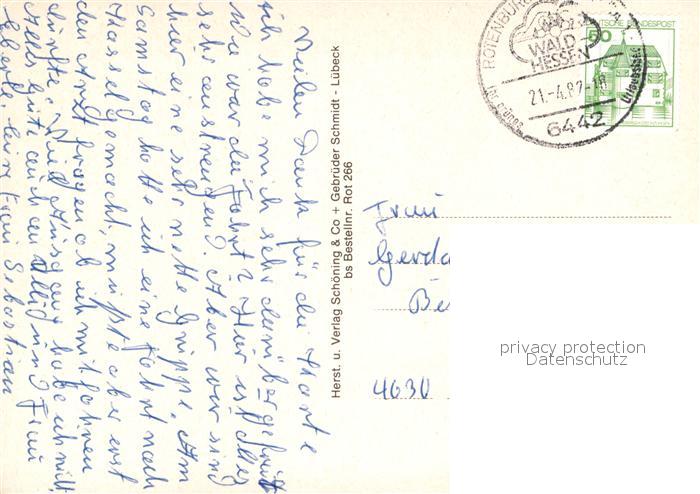 Vielen Dank für die Karte
ich habe mich sehr darüber gefreut
Wie war die Fahrt? Hier ist alles
sehr anstrengend. Aber wir sind
hier eine sehr nette Gruppe. Am
Samstag hatte ich eine Fahrt nach
Kassel gemacht, müsste aber erst
den Arzt fragen ob ich mitfahren
dürfte. Viel Ausgang habe ich nicht.
Alles Gute auch an und Frau
Eberle. Eure Frau Sebastian
Herst. u. Verlag Schöning & Co + Gebrüder Schmidt - Lübeck
bs Bestellnr. Rot 266
ROTENBURG
WALD
HESSEN
21.-4.82-
6442
DEUTSCHE BUNDESPOST
50
Frau
Gerda
Be
4630
privacy protection
Datenschutz